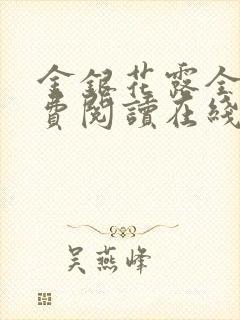 金銀花露全
費閱讀在綫
吴燕峰